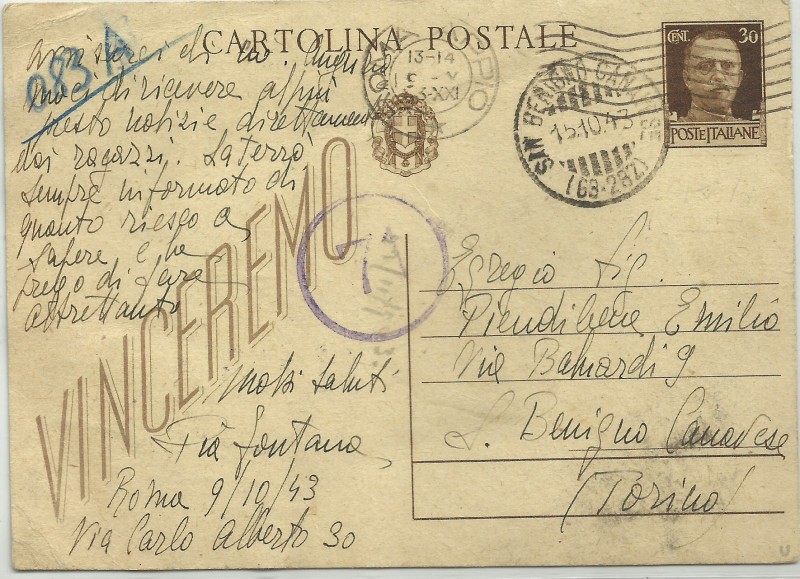 CARTOLINA POSTALE
CENT. 30
POSTE ITALIANE
083 A
13-14
XXI
SAN BENIGNO CANAVESE
15.10.43
(63-282)
VINCEREMO
di
moci di ricevere al più
presto notizie direttamente
dai ragazzi. La terrò
sempre informato di
quanto riesco a
sapere e la
prego di fare
altrettanto
Molti saluti
Pia Fontana
Roma 9/10/43
Via Carlo Alberto 30
Egregio Sig.
Piendibene Emilio
Via 9
S. Benigno Canavese
(Torino)